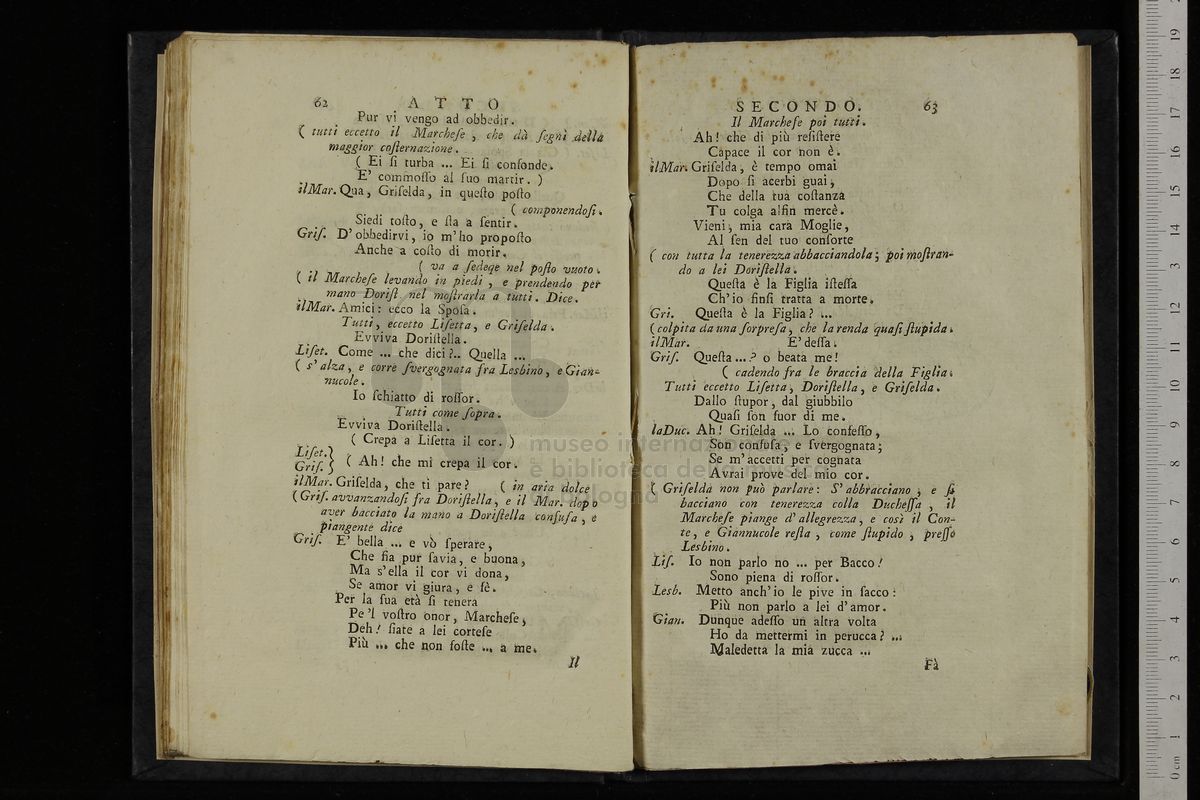 62 ATTO
Pur vi vengo ad obbedir.
( tutti eccetto il Marcheſe , che dà ſegni della
maggior coſternazione.
( Ei ſi turba ... Ei ſi confonde.
E' commoſſo al ſuo martir. )
ilMar. Qua, Griſelda, in queſto poſto
( componendoſi.
Siedi toſto, e ſta a ſentir.
Griſ. D'obbedirvi, io m'ho propoſto
Anche a coſto di morir.
( va a ſedeqe nel poſto vuoto.
( il Marcheſe levando in piedi , e prendendo per
mano Doriſt. nel moſtrarla a tutti. Dice.
ilMar. Amici: ecco la Spoſa.
Tutti, eccetto Liſetta, e Griſelda.
Evviva Doriſtella.
Liſet. Come ... che dici?.. Quella ...
( s'alza, e corre ſvergognata fra Lesbino, e Gian-
nucole.
Io ſchiatto di roſſor.
Tutti come ſopra.
Evviva Doriſtella.
( Crepa a Liſetta il cor. )
Liſet.}
Griſ. } ( Ah! che mi crepa il cor.
ilMar. Griſelda, che ti pare? ( in aria dolce
( Griſ. avvanzandoſi fra Doriſtella, e il Mar. dopo
aver bacciato la mano a Doriſtella confuſa , e
piangente dice
Griſ. E' bella ... e vò ſperare,
Che ſia pur ſavia, e buona,
Ma s'ella il cor vi dona,
Se amor vi giura, e fè.
Per la ſua età ſi tenera
Pe'l voſtro onor, Marcheſe,
Deh! ſiate a lei corteſe
Più ... che non foſte ... a me.
Il
SECONDO. 63
Il Marcheſe poi tutti.
Ah! che di più reſiſtere
Capace il cor non è.
ilMar. Griſelda, è tempo omai
Dopo ſi acerbi guai,
Che della tua coſtanza
Tu colga alfin mercè.
Vieni, mia cara Moglie,
Al ſen del tuo conſorte
( con tutta la tenerezza abbacciandola; poi moſtran-
do a lei Doriſtella.
Queſta è la Figlia iſteſſa
Ch'io finſi tratta a morte.
Gri. Queſta è la Figlia? ...
(colpita da una ſorpreſa, che la renda quaſi ſtupida.
ilMar. E' deſſa.
Griſ. Queſta ...? o beata me!
( cadendo fra le braccia della Figlia.
Tutti eccetto Liſetta, Doriſtella, e Griſelda.
Dallo ſtupor, dal giubbilo
Quaſi ſon fuor di me.
laDuc. Ah! Griſelda ... Lo confeſſo,
Son confuſa, e ſvergognata;
Se m'accetti per cognata
Avrai prove del mio cor.
( Griſelda non può parlare: S'abbracciano , e ſi
bacciano con tenerezza colla Ducheſſa , il
Marcheſe piange d'allegrezza, e così il Con-
te, e Giannucole reſta , come ſtupido , preſſo
Lesbino.
Liſ. Io non parlo no ... per Bacco!
Sono piena di roſſor.
Lesb. Metto anch'io le pive in ſacco:
Più non parlo a lei d'amor.
Gian. Dunque adeſſo un altra volta
Ho da mettermi in perucca? ...
Maledetta la mia zucca ...
Fà
museo internazionale
e biblioteca della musica
di bologna
0 cm 1 2 3 4 5 6 7 8 9 10 11 12 13 14 15 16 17 18 19